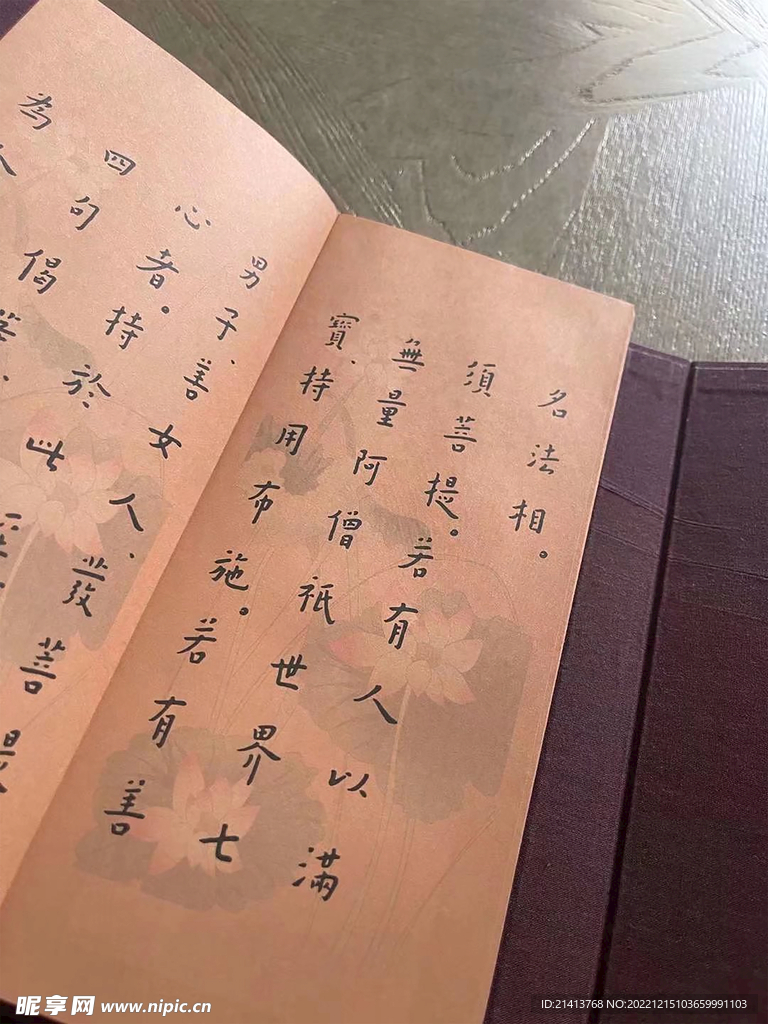 名法相。
須菩提。若有人以滿
無量阿僧祇世界七
寶、持用布施。若有善
男子、善女人、發菩
心者。持於此
四句偈
為
昵享网 www.nipic.cn
ID:21413768 NO:20221215103659991103